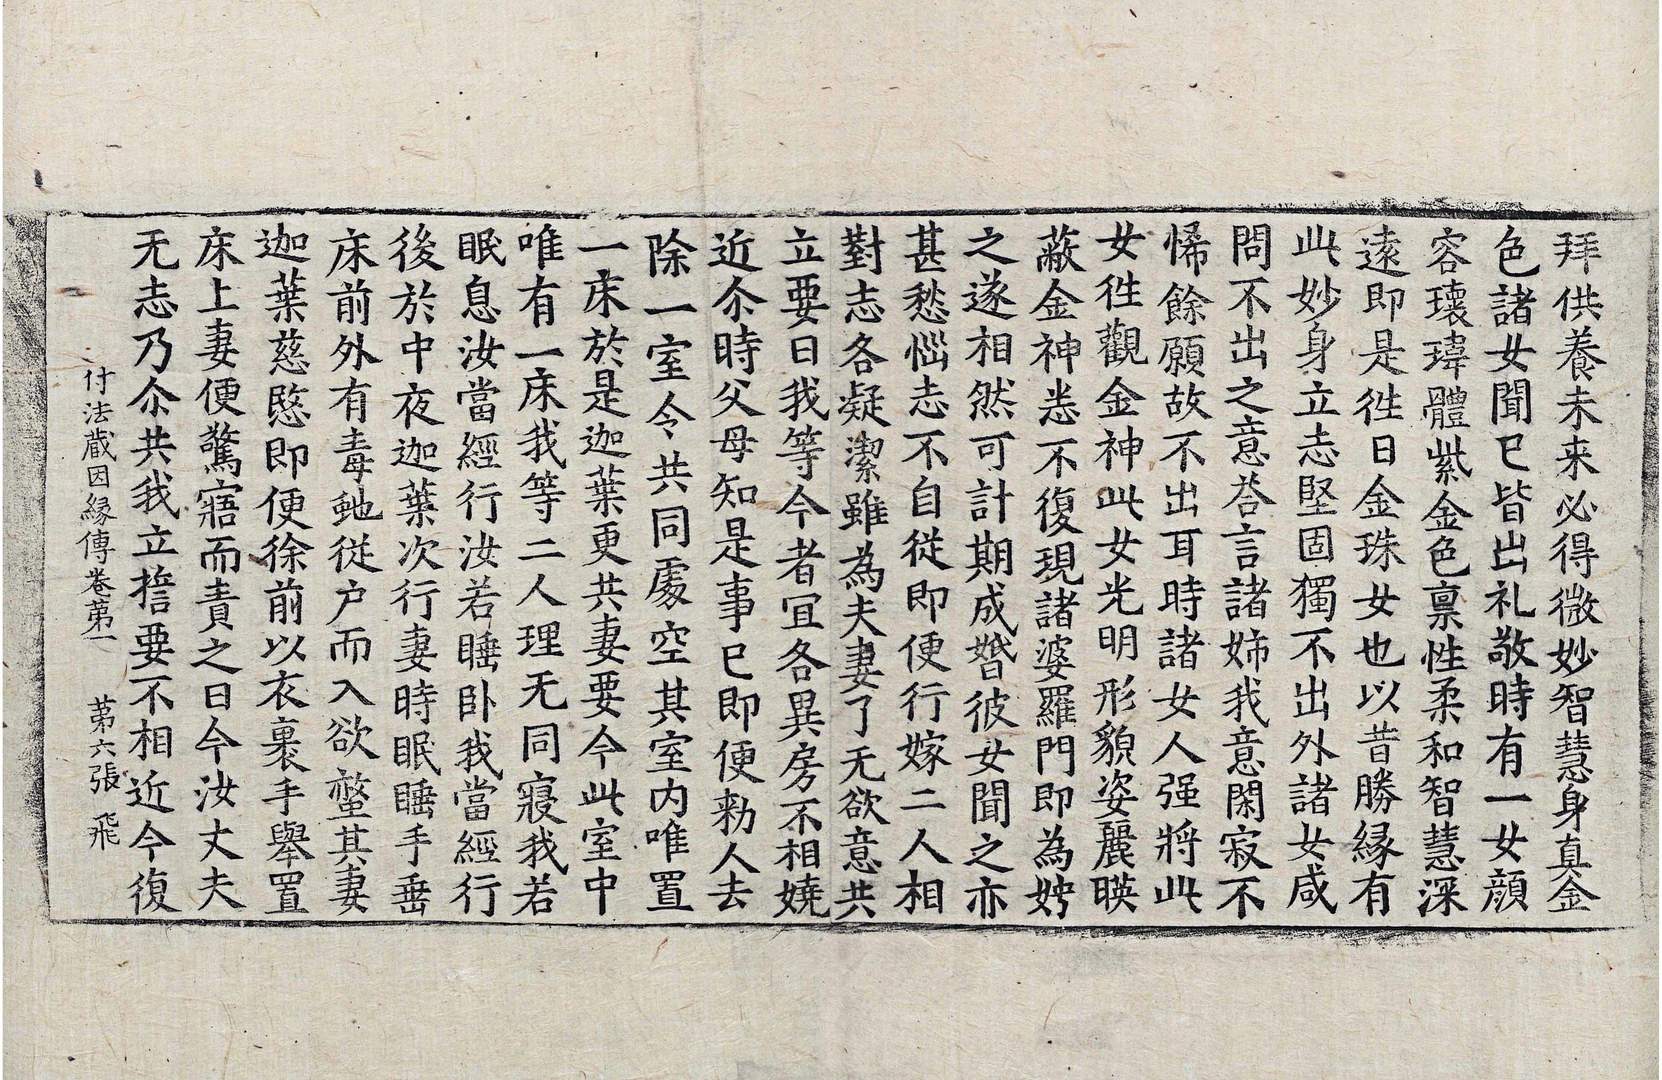 拜供養未来必得微妙智慧身真金
色諸女聞已皆出礼敬時有一女顔
容瓌瑋體紫金色禀性柔和智慧深
遠即是徃日金珠女也以昔勝縁有
此妙身立志堅固獨不出外諸女咸
問不出之意荅言諸姉我意閑寂不
悕餘願故不出耳時諸女人强將此
女徃觀金神此女光明形貌姿麗暎
蔽金神悉不復現諸婆羅門即為娉
之遂相然可計期成婚彼女聞之亦
甚愁惱志不自從即便行嫁二人相
對志各凝潔雖為夫妻了无欲意共
立要曰我等今者冝各異房不相嬈
近尒時父母知是事已即便勑人去
除一室令共同處空其室内唯置
一床於是迦葉更共妻要今此室中
唯有一床我等二人理无同寢我若
眠息汝當經行汝若睡卧我當經行
後於中夜迦葉次行妻時眠睡手垂
床前外有毒虵從户而入欲螫其妻
迦葉慈愍即便徐前以衣裹手舉置
床上妻便驚寤而責之曰今汝丈夫
无志乃尒共我立誓要不相近今復
付法藏因縁傳卷苐一 苐六張 飛